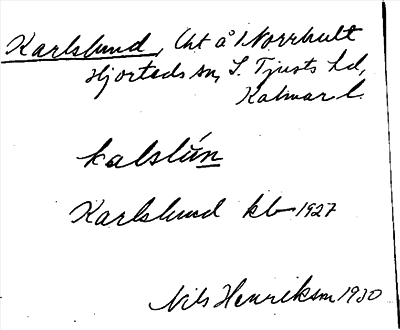 Karlslund, lht å Norrhult
Hjorteds sn, S. Tjusts hd,
Kalmar l.
kalslún
Karlslund kb 1927
Nils Henriksson 1930